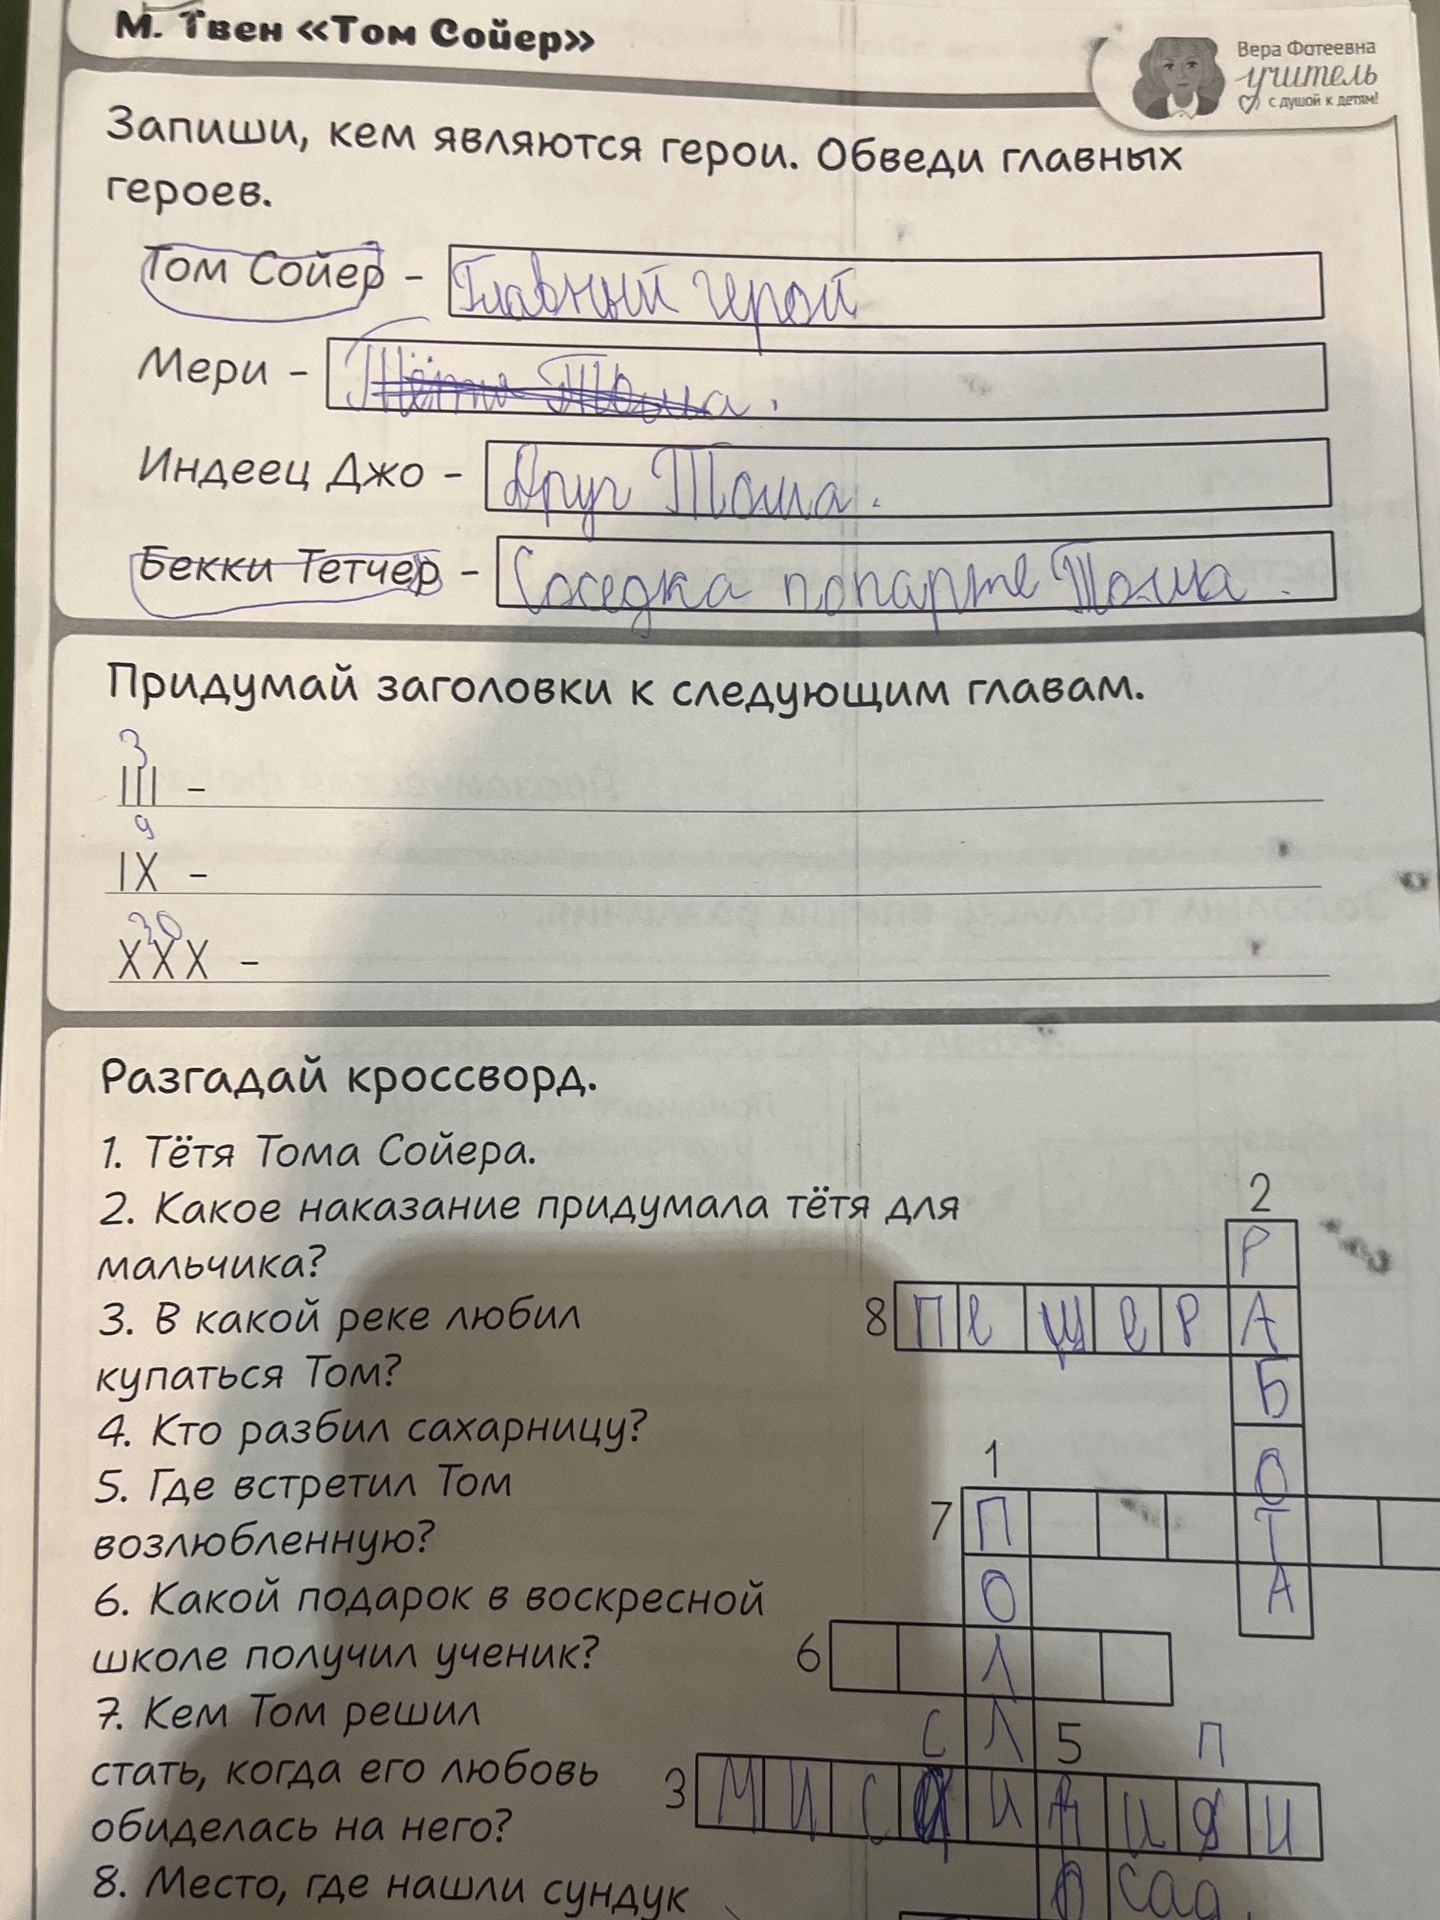 М. Твен «Том Сойер»
Вера Фотеевна
учитель
с душой к детям!
Запиши, кем являются герои. Обведи главных
героев.
Том Сойер - Главный герой
Мери - Тётя Тома.
Индеец Джо - Друг Тома.
Бекки Тетчер - Соседка попарте Тома.
Придумай заголовки к следующим главам.
3
III -
9
IX -
30
XXX -
Разгадай кроссворд.
1. Тётя Тома Сойера.
2. Какое наказание придумала тётя для
мальчика?
3. В какой реке любил
купаться Том?
4. Кто разбил сахарницу?
5. Где встретил Том
возлюбленную?
6. Какой подарок в воскресной
школе получил ученик?
7. Кем Том решил
стать, когда его любовь
обиделась на него?
8. Место, где нашли сундук
2
Р
8 ПещерА
Б
О
1
7 П Т
О А
6 Л
С Л 5 П
3 МИС И И И
сад.